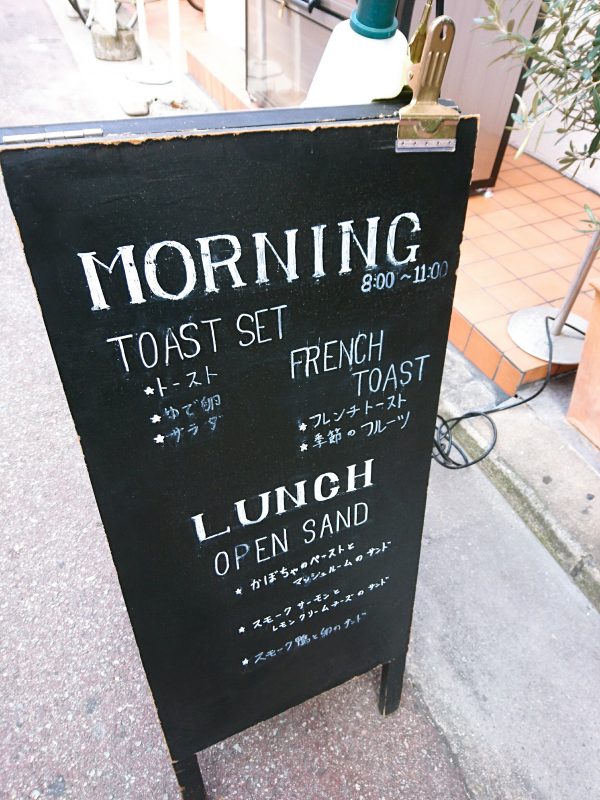 MORNING
8:00～11:00
TOAST SET
★トースト
★ゆで卵
★サラダ
FRENCH
TOAST
★フレンチトースト
★季節のフルーツ
LUNCH
OPEN SAND
★かぼちゃのペーストと
マッシュルームのサンド
★スモークサーモンと
レモンクリームチーズのサンド
★スモーク鴨と卵のサンド